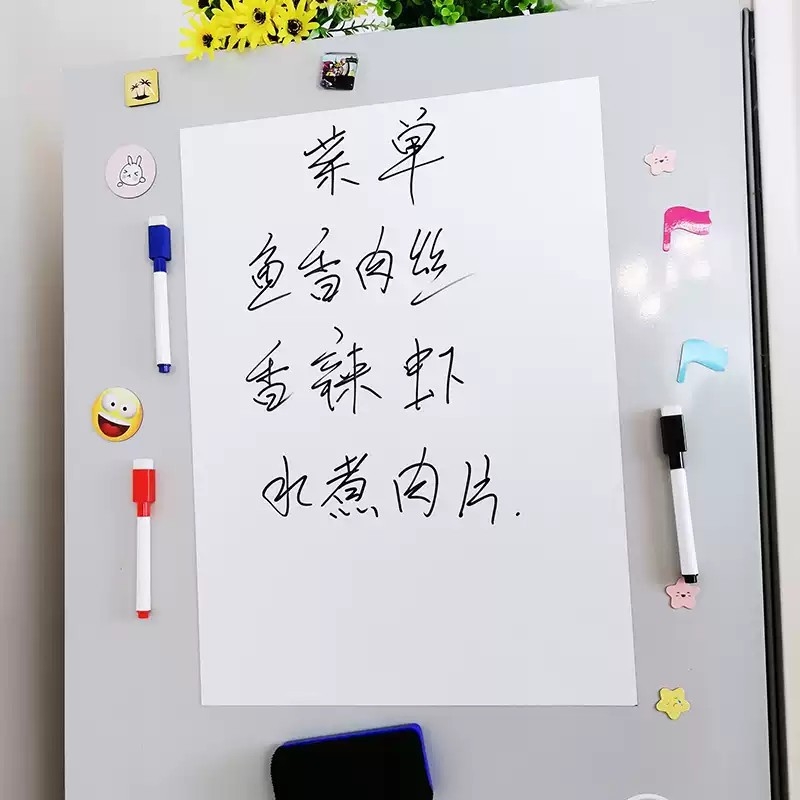 菜单
鱼香肉丝
香辣虾
水煮肉片.